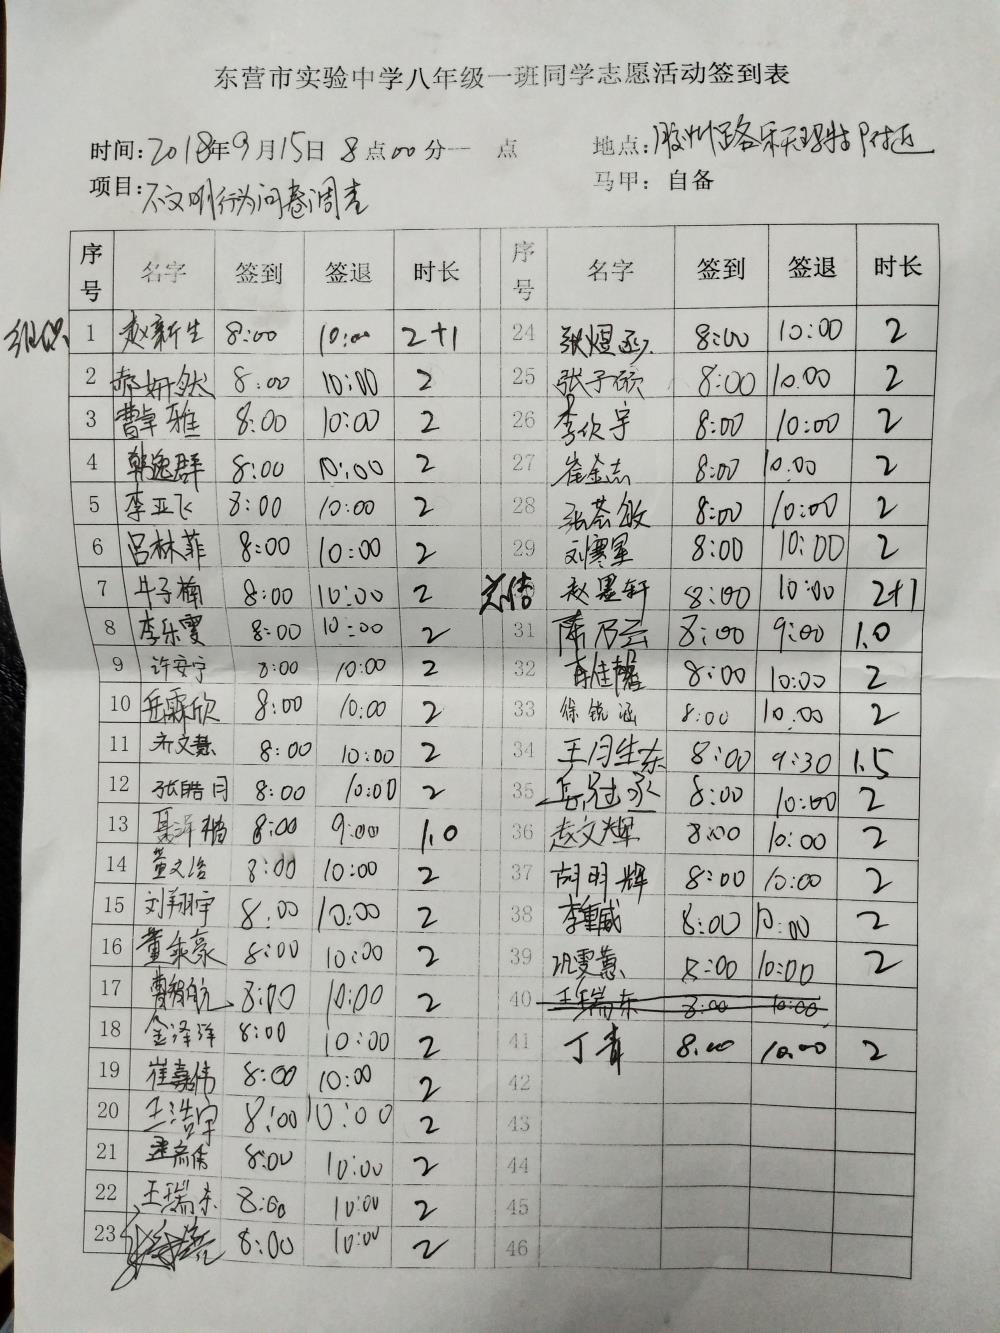 东营市实验中学八年级一班同学志愿活动签到表
时间:2018年9月15日 8点00分一 点 地点:胶州路乐天玛特附近
项目:不文明行为问卷调查 马甲：自备
序号 名字 签到 签退 时长 序号 名字 签到 签退 时长
组织 1 赵新生 8:00 10:00 2+1 24 张煜 8:00 10:00 2
2 郝妍然 8:00 10:00 2 25 张子硕 8:00 10:00 2
3 曹卓雅 8:00 10:00 2 26 李欣宇 8:00 10:00 2
4 韩逸群 8:00 10:00 2 27 崔金志 8:00 10:00 2
5 李亚飞 8:00 10:00 2 28 张荟敏 8:00 10:00 2
6 吕林菲 8:00 10:00 2 29 刘寒星 8:00 10:00 2
7 牛子楠 8:00 10:00 2 总结 赵墨轩 8:00 10:00 2+1
8 李乐雯 8:00 10:00 2 31 陈乃芸 8:00 9:00 1.0
9 许安宁 8:00 10:00 2 32 佳馨 8:00 10:00 2
10 岳霖欣 8:00 10:00 2 33 徐锐涵 8:00 10:00 2
11 齐文慧 8:00 10:00 2 34 王月生东 8:00 9:30 1.5
12 张皓月 8:00 10:00 2 35 岳冠丞 8:00 10:00 2
13 聂泽楷 8:00 9:00 1.0 36 赵文辉 8:00 10:00 2
14 董文浩 8:00 10:00 2 37 胡明辉 8:00 10:00 2
15 刘翔宇 8:00 10:00 2 38 李重威 8:00 10:00 2
16 董乘豪 8:00 10:00 2 39 巩雯蕙 8:00 10:00 2
17 曹智航 8:00 10:00 2 40 王瑞东 8:00 10:00
18 金泽洋 8:00 10:00 2 41 丁青 8:00 10:00 2
19 崔嘉伟 8:00 10:00 2 42
20 王浩宇 8:00 10:00 2 43
21 8:00 10:00 2 44
22 王瑞东 8:00 10:00 2 45
23 8:00 10:00 2 46